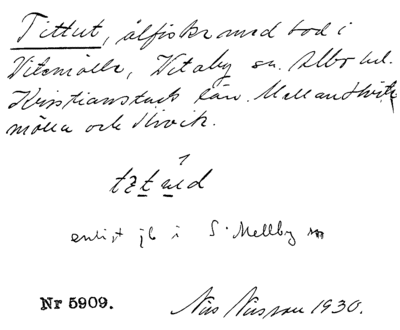 Tittut, ålfiske med bod i
Vitemölla, Vitaby sn. Albo hd.
Kristianstads län. Mellan Hvite
mölla och Kivik.
enligt jb i S. Mellby sn
Nr 5909. Nils Nilsson 1930.